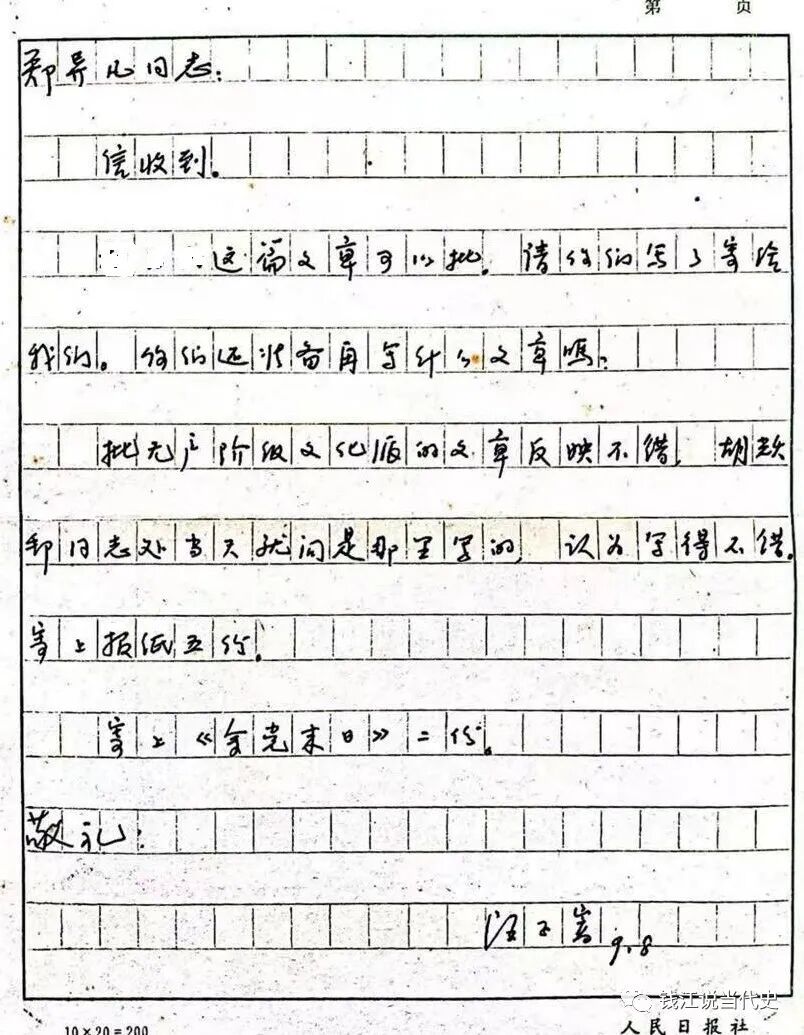 第 页
郑异凡同志：
信收到。
这篇文章可以批。请你们写了寄给
我们。你们还准备再写什么文章吗？
批无产阶级文化派的文章反映不错，胡
同志处当天就问是那里写的，认为写得不错。
寄上报纸五份。
寄上《末日》二份。
敬礼！
汪子嵩 9.8
10×20=200
人民日报社
钱江说当代史